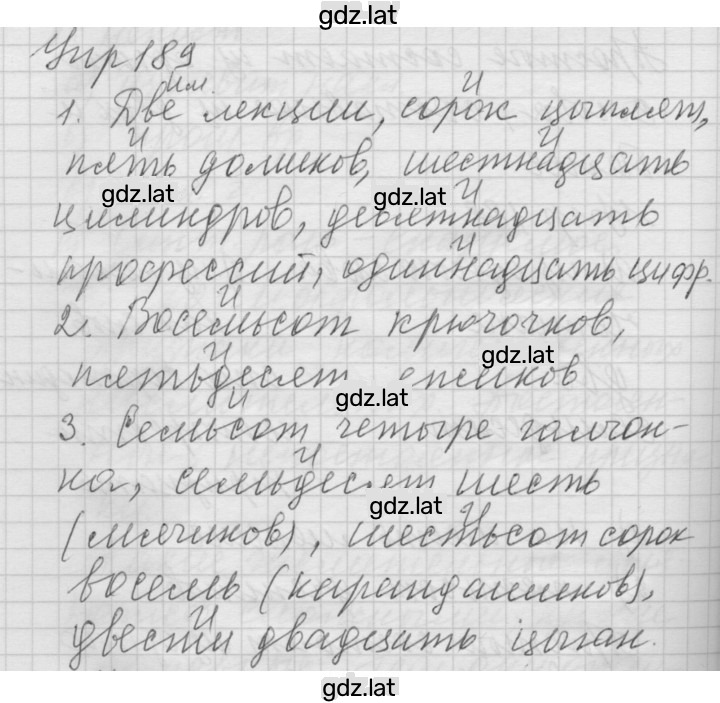 gdz.lat
Упр 189
Им. И
1. Две лекции, сорок цыплят,
И И
пять домиков, шестнадцать
gdz.lat gdz.lat И
цилиндров, девятнадцать
И
профессий, одиннадцать цифр.
И
2. Восемьсот крючочков,
И gdz.lat
пятьдесят
gdz.lat И
3. Семьсот четыре галчон-
И
ка, семьдесят шесть
gdz.lat И
(мячиков), шестьсот сорок
восемь (карандашиков),
И
двести двадцать цыган.
gdz.lat